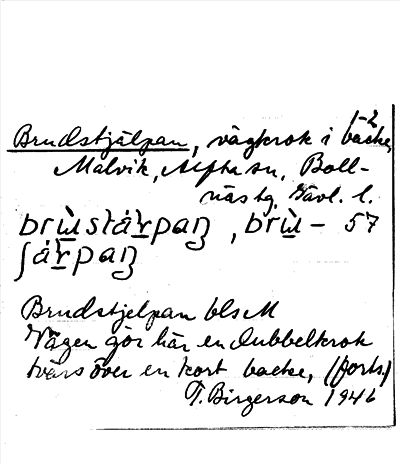 1-2
Brudstjälpan, vägkrok i backe,
Malvik, Alfta sn, Boll-
näs tg, Gävl. l.
brùstárpaŋ, brù- 57
ʃárpaŋ
Brudstjelpan bls M
Vägen gör här en dubbelkrok
tvärs över en kort backe, (forts.)
T. Birgerson 1946